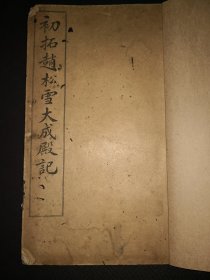 初拓趙松雪大成殿記